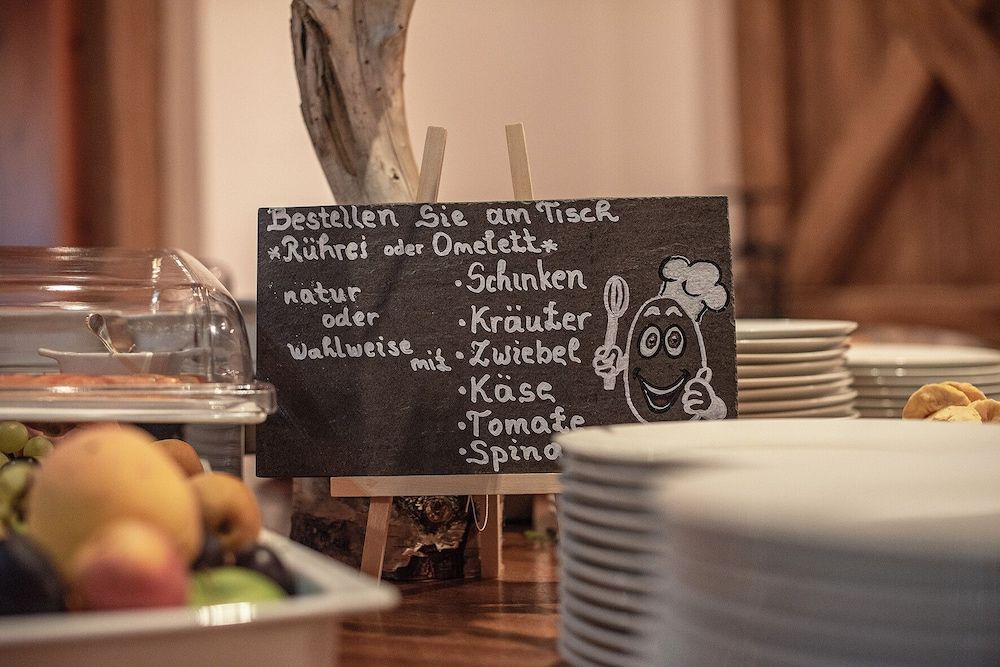 Bestellen Sie am Tisch
*Rührei oder Omelett*
natur
oder
wahlweise mit
· Schinken
· Kräuter
· Zwiebel
· Käse
· Tomate